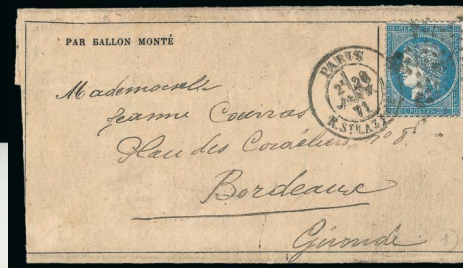 PAR BALLON MONTÉ
PARIS
2E 26
JANV.
71
R. ST LAZ
Mademoiselle
Jeanne Courras
Plau des Cordéliers
Bordeaux
Gironde
1)